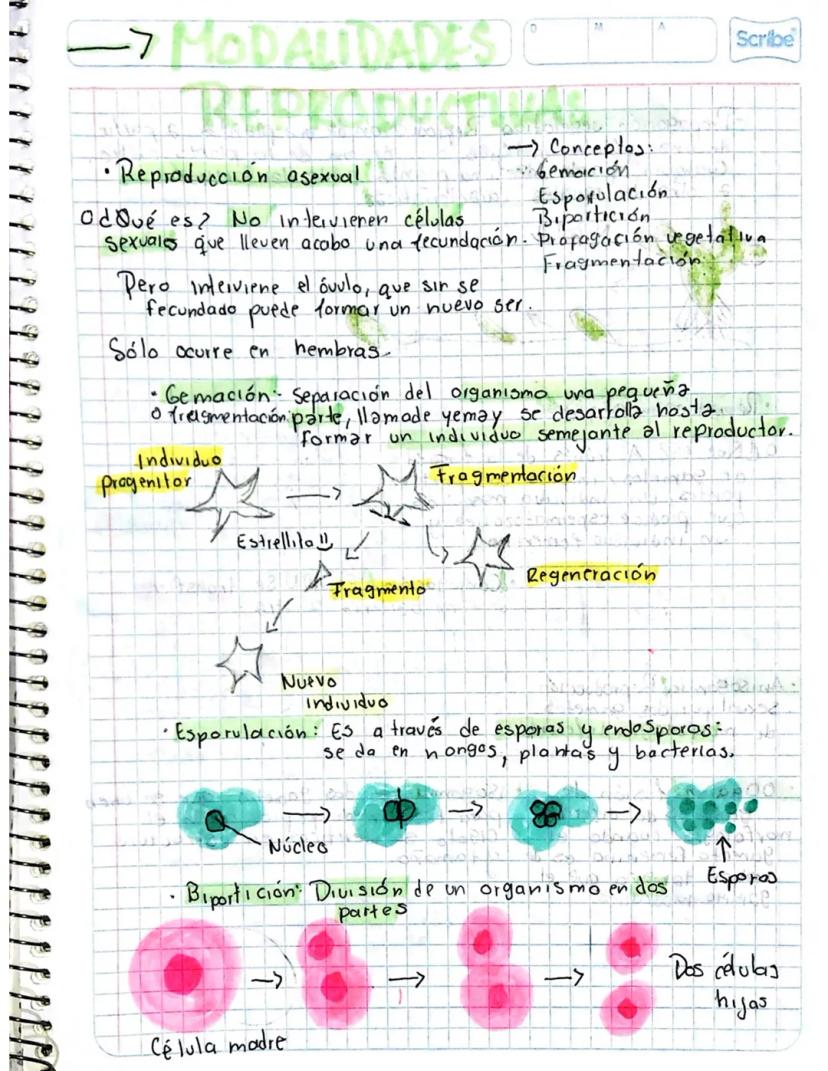 → MODALIDADES
REPRODUCTIVAS
D M A
Scribe
→ Conceptos:
Gemación
Esporulación
Bipartición
Propagación vegetativa
Fragmentación
• Reproducción asexual
¿Qué es? No intervienen células
sexuales que lleven acabo una fecundación.
Pero interviene el óvulo, que sin se
fecundado puede formar un nuevo ser.
Sólo ocurre en hembras.
• Gemación: Separación del organismo una pequeña
o fragmentación parte, llamade yema y se desarrolla hasta
formar un individuo semejante al reproductor.
Individuo
progenitor
Fragmentación
Estrellita
Fragmento
Regeneración
Nuevo
individuo
• Esporulación: Es a través de esporas y endosporos:
se da en hongos, plantas y bacterias.
Núcleo
Esporas
• Bipartición: División de un organismo en dos
partes
Dos células
hijas
Célula madre